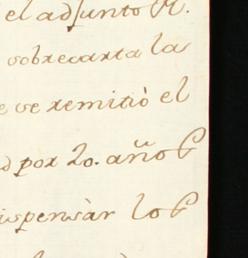 el adjunto R.
sobrecarta la
se remitiò el
por 20. añọs
ispensàr los